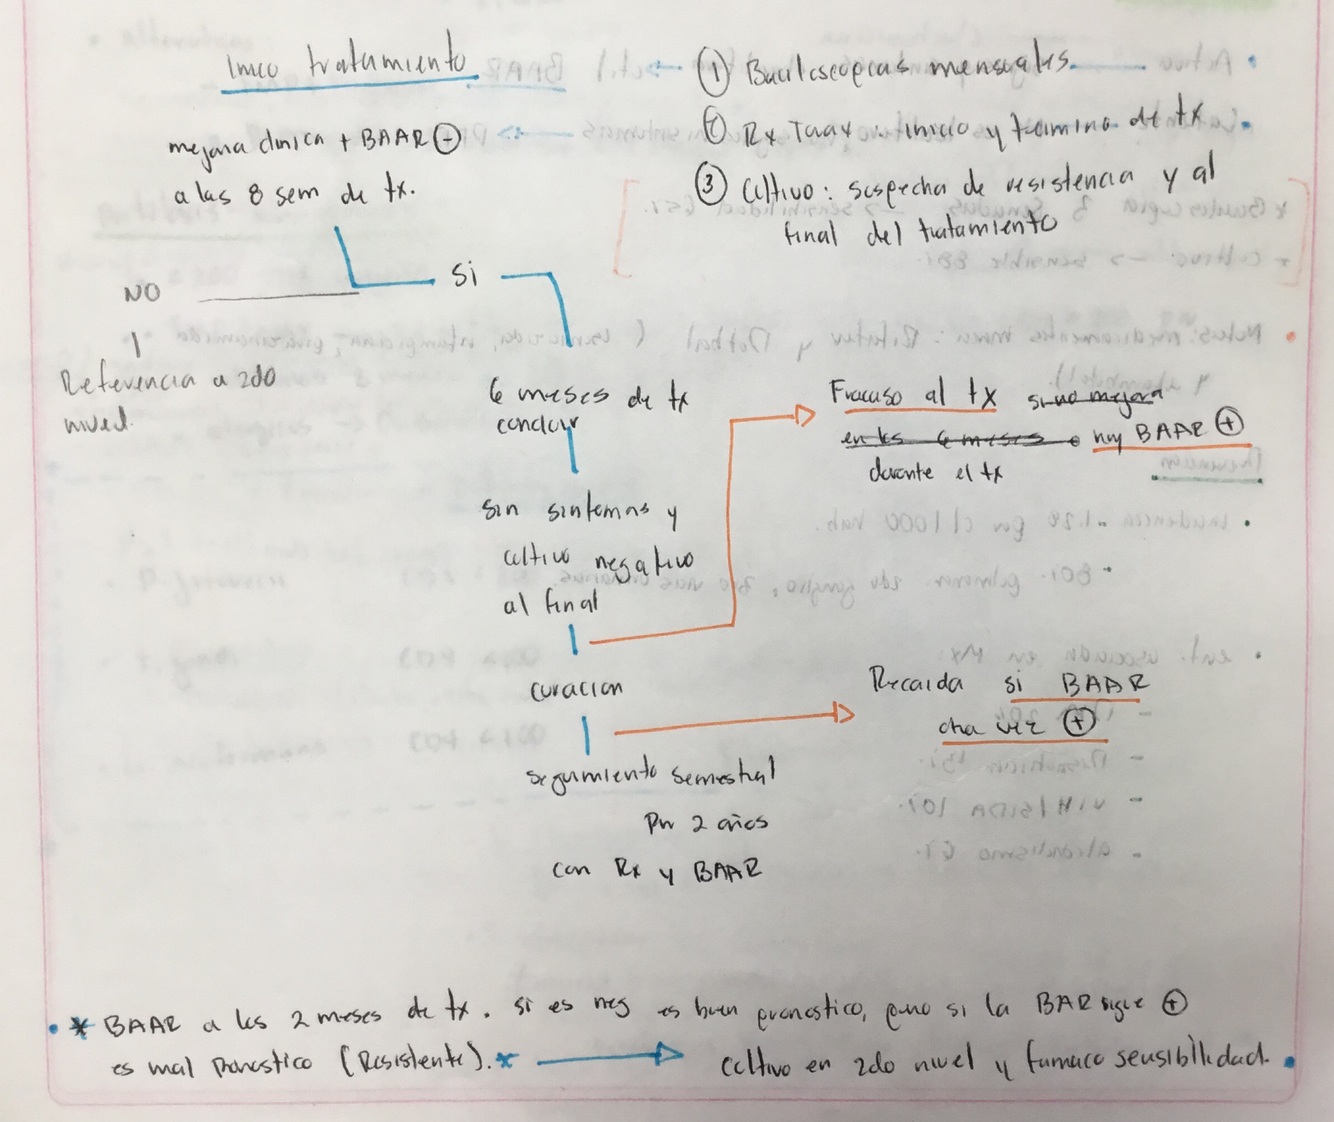 Inicio tratamiento
mejoria clinica + BAAR ⊖
a las 8 sem de tx.
① Baciloscopias mensuales.
② Rx Torax : inicio y termino de tx
③ Cultivo : sospecha de resistencia y al
final del tratamiento
NO
Si
Referencia a 2do
nivel.
6 meses de tx
concluir
Sin sintomas y
cultivo negativo
al final
curacion
seguimiento semestral
por 2 años
con Rx y BAAR
Fracaso al tx si no mejora
en los 6 meses o hay BAAR ⊕
durante el tx
Recaida si BAAR
otra vez ⊕
* BAAR a los 2 meses de tx. si es neg es buen pronostico, pero si la BAR sigue ⊕
es mal pronostico (Resistente).* → Cultivo en 2do nivel y farmaco sensibilidad.